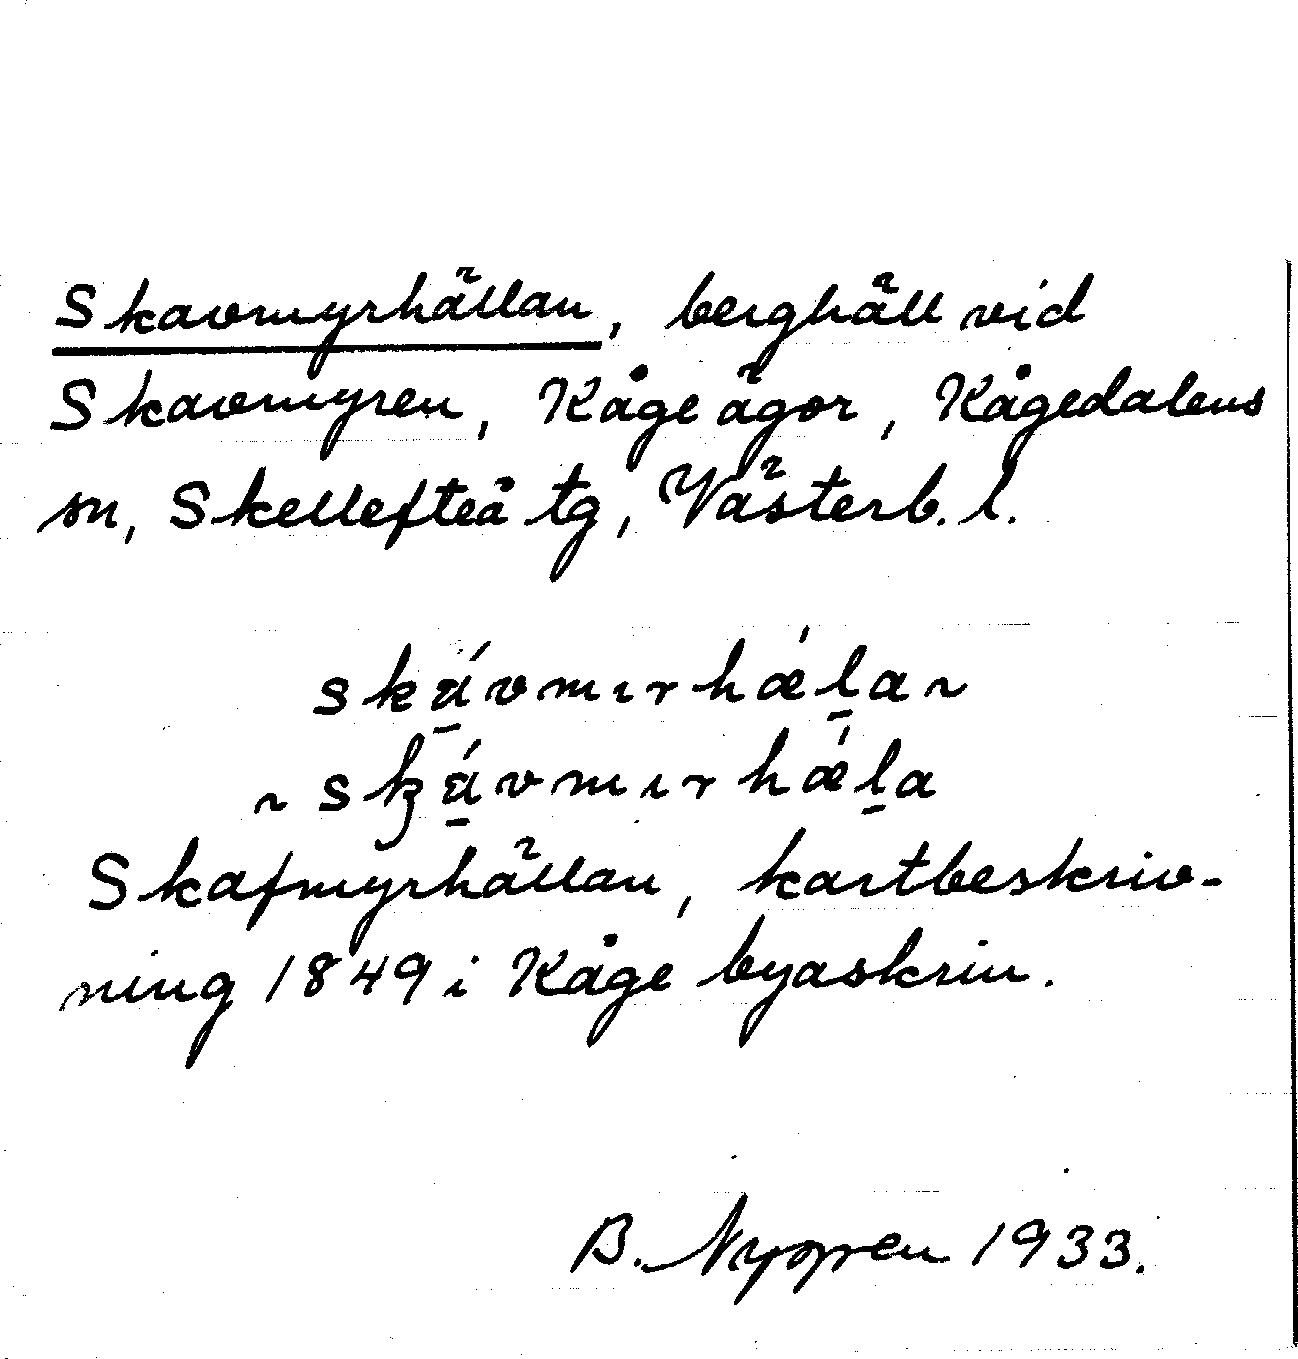 Skavmyrhällan, berghäll vid
Skavmyren, Kåge ägor, Kågedalens
sn, Skellefteå tg, Västerb. l.
sKạ́vmırhǽl̠a ~
~ skạ́vmırhǽl̠a
Skafmyrhällan, kartbeskriv-
ning 1849 i Kåge byaskrin.
B. Nygren 1933.